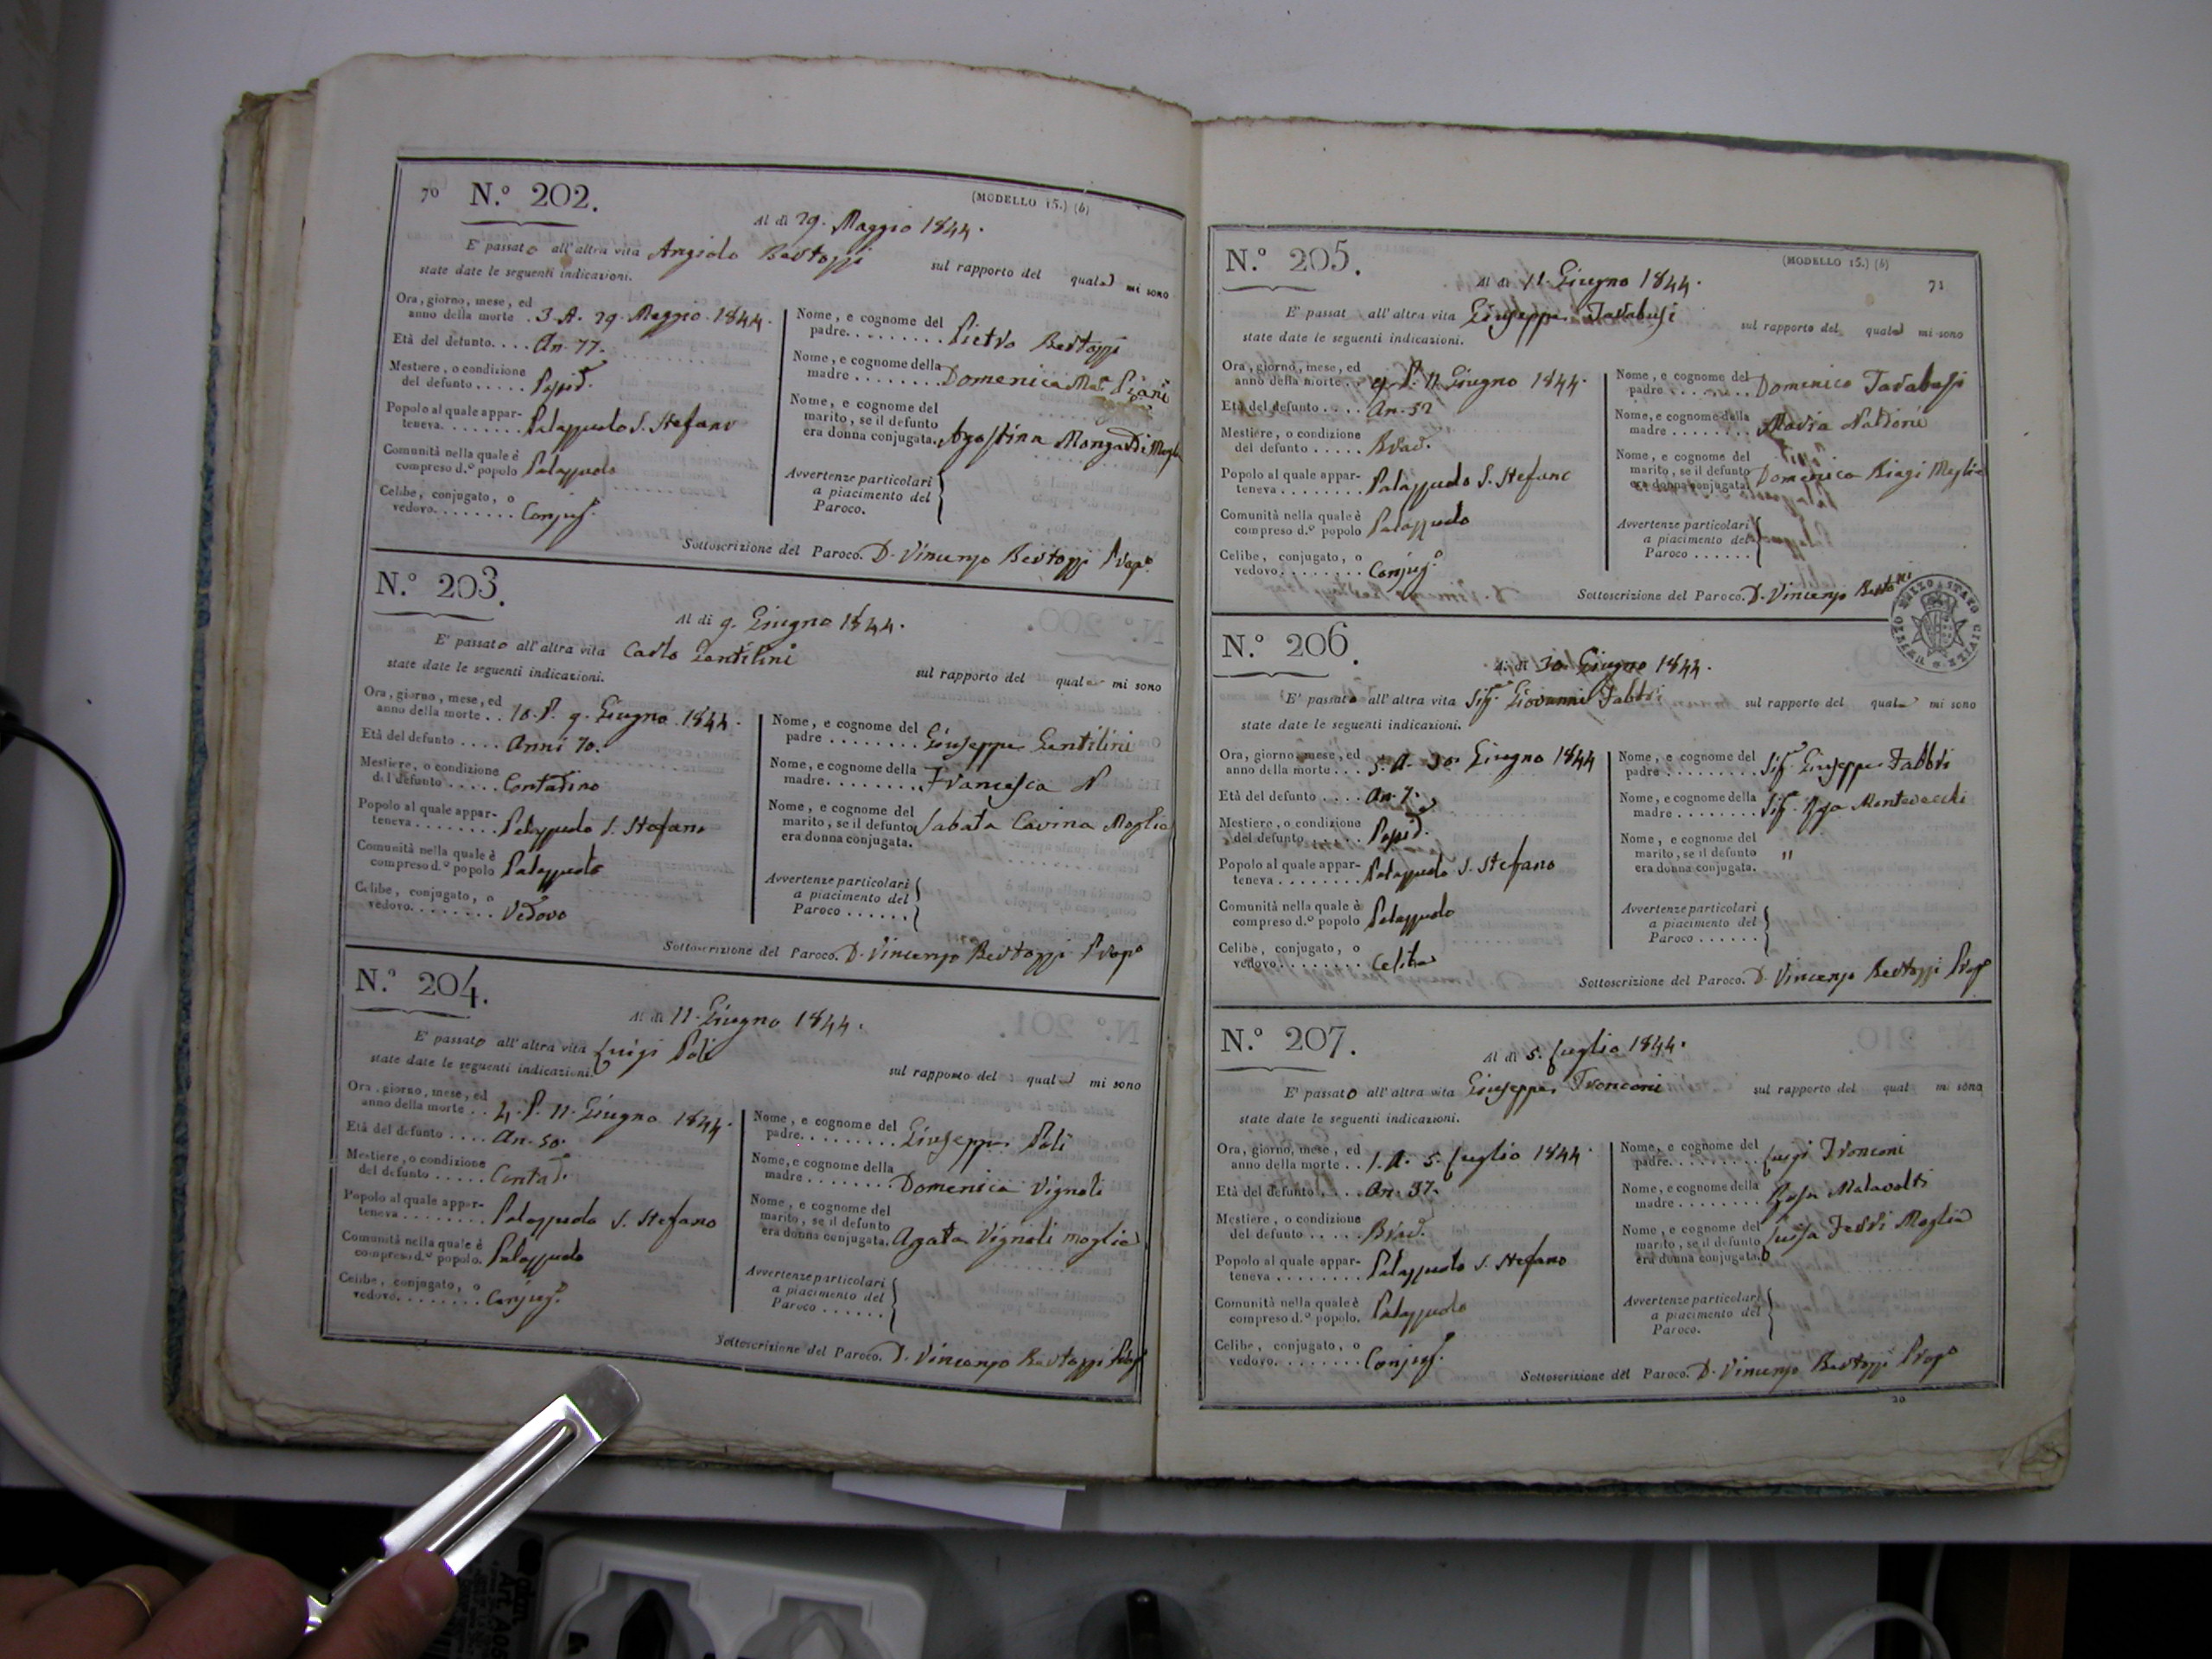 70 N.º 202. (MODELLO 15.) (b)
Al dì 29. Maggio 1844.
E' passato all'altra vita Angiolo Bertozzi sul rapporto del qual mi sono
state date le seguenti indicazioni.
Ora, giorno, mese, ed
anno della morte . 3. A. 29. Maggio. 1844.
Età del defunto. . . . An. 77.
Mestiere, o condizione
del defunto . . . . . Possid.
Popolo al quale appar-
teneva. . . . . . . . Palazzuolo S. Stefano
Comunità nella quale è
compreso d.º popolo Palazzuolo
Celibe, conjugato, o
vedovo. . . . . . . . Conjug.
Nome, e cognome del
padre. . . . . . . . . Pietro Bertozzi
Nome, e cognome della
madre . . . . . . . . Domenica Mar.
Nome, e cognome del
marito, se il defunto
era donna conjugata. Agostina Mongardi Mogl
Avvertenze particolari
a piacimento del
Paroco.
Sottoscrizione del Paroco. D. Vincenzo Bertozzi Prop.º
N.º 203.
Al dì 9. Giugno 1844.
E' passato all'altra vita Carlo Gentilini sul rapporto del qual mi sono
state date le seguenti indicazioni.
Ora, giorno, mese, ed
anno della morte . . 10. P. 9. Giugno. 1844.
Età del defunto . . . . Anni 70.
Mestiere, o condizione
del defunto . . . . . Contadino
Popolo al quale appar-
teneva . . . . . . . . Palazzuolo S. Stefano
Comunità nella quale è
compreso d.º popolo Palazzuolo
Celibe, conjugato, o
vedovo. . . . . . . . Vedovo
Nome, e cognome del
padre . . . . . . . . Giuseppe Gentilini
Nome, e cognome della
madre. . . . . . . . Francesca N
Nome, e cognome del
marito, se il defunto
era donna conjugata. Sabata Cavina Moglie
Avvertenze particolari
a piacimento del
Paroco . . . . . .
Sottoscrizione del Paroco. D. Vincenzo Bertozzi Prop.º
N.º 204.
Al dì 11. Giugno 1844.
E' passato all'altra vita Luigi Poli sul rapporto del qual mi sono
state date le seguenti indicazioni.
Ora, giorno, mese, ed
anno della morte . . 4. P. 11. Giugno. 1844.
Età del defunto . . . . An. 50.
Mestiere, o condizione
del defunto . . . . . Contad.
Popolo al quale appar-
teneva . . . . . . . . Palazzuolo S. Stefano
Comunità nella quale è
compreso d.º popolo. Palazzuolo
Celibe, conjugato, o
vedovo. . . . . . . . Conjug.
Nome, e cognome del
padre. . . . . . . . . Giuseppe Poli
Nome, e cognome della
madre . . . . . . . . Domenica Vignoli
Nome, e cognome del
marito, se il defunto
era donna conjugata. Agata Vignoli moglie
Avvertenze particolari
a piacimento del
Paroco . . . . . .
Sottoscrizione del Paroco. D. Vincenzo Bertozzi Prop.
N.º 205. (MODELLO 15.) (b)
Al dì 11. Giugno 1844. 71
E' passat all'altra vita Giuseppe Tarabusi sul rapporto del qual mi sono
state date le seguenti indicazioni.
Ora, giorno, mese, ed
anno della morte . . 9. P. 11. Giugno 1844.
Età del defunto . . . . An. 52
Mestiere, o condizione
del defunto . . . . . Brac.
Popolo al quale appar-
teneva . . . . . . . . Palazzuolo S. Stefano
Comunità nella quale è
compreso d.º popolo Palazzuolo
Celibe, conjugato, o
vedovo. . . . . . . . Conjug.
Nome, e cognome del
padre . . . . . . . . Domenico Tarabusi
Nome, e cognome della
madre . . . . . . . . Maria Naldoni
Nome, e cognome del
marito, se il defunto
era donna conjugata. Domenica Biagi Moglie
Avvertenze particolari
a piacimento del
Paroco . . . . . .
Sottoscrizione del Paroco. D. Vincenzo
UFFIZIO DELLO STATO CIVILE
N.º 206.
Al dì 30. Giugno 1844.
E' passato all'altra vita Sig. Giovanni Fabbri sul rapporto del qual mi sono
state date le seguenti indicazioni.
Ora, giorno, mese, ed
anno della morte . . . 5. A. 30. Giugno 1844
Età del defunto . . . . An. 7.
Mestiere, o condizione
del defunto . . . . . Possid.
Popolo al quale appar-
teneva . . . . . . . . Palazzuolo S. Stefano
Comunità nella quale è
compreso d.º popolo Palazzuolo
Celibe, conjugato, o
vedovo. . . . . . . . Celibe
Nome, e cognome del
padre . . . . . . . . . Sig. Giuseppe Fabbri
Nome, e cognome della
madre . . . . . . . . Sig. Montevecchi
Nome, e cognome del
marito, se il defunto "
era donna conjugata.
Avvertenze particolari
a piacimento del
Paroco . . . . . .
Sottoscrizione del Paroco. D. Vincenzo Bertozzi Prop.º
N.º 207.
Al dì 5. Luglio 1844.
E' passato all'altra vita Giuseppe Tronconi sul rapporto del qual mi sono
state date le seguenti indicazioni.
Ora, giorno, mese, ed
anno della morte . . 1. A. 5. Luglio 1844.
Età del defunto . . . . An. 37.
Mestiere, o condizione
del defunto . . . . . Brac.
Popolo al quale appar-
teneva . . . . . . . . Palazzuolo S. Stefano
Comunità nella quale è
compreso d.º popolo. Palazzuolo
Celibe, conjugato, o
vedovo. . . . . . . . Conjug.
Nome, e cognome del
padre. . . . . . . . . Luigi Tronconi
Nome, e cognome della
madre . . . . . . . . Rosa Malavolti
Nome, e cognome del
marito, se il defunto
era donna conjugata. Luisa Ferri Moglie
Avvertenze particolari
a piacimento del
Paroco.
Sottoscrizione del Paroco. D. Vincenzo Bertozzi Prop.º